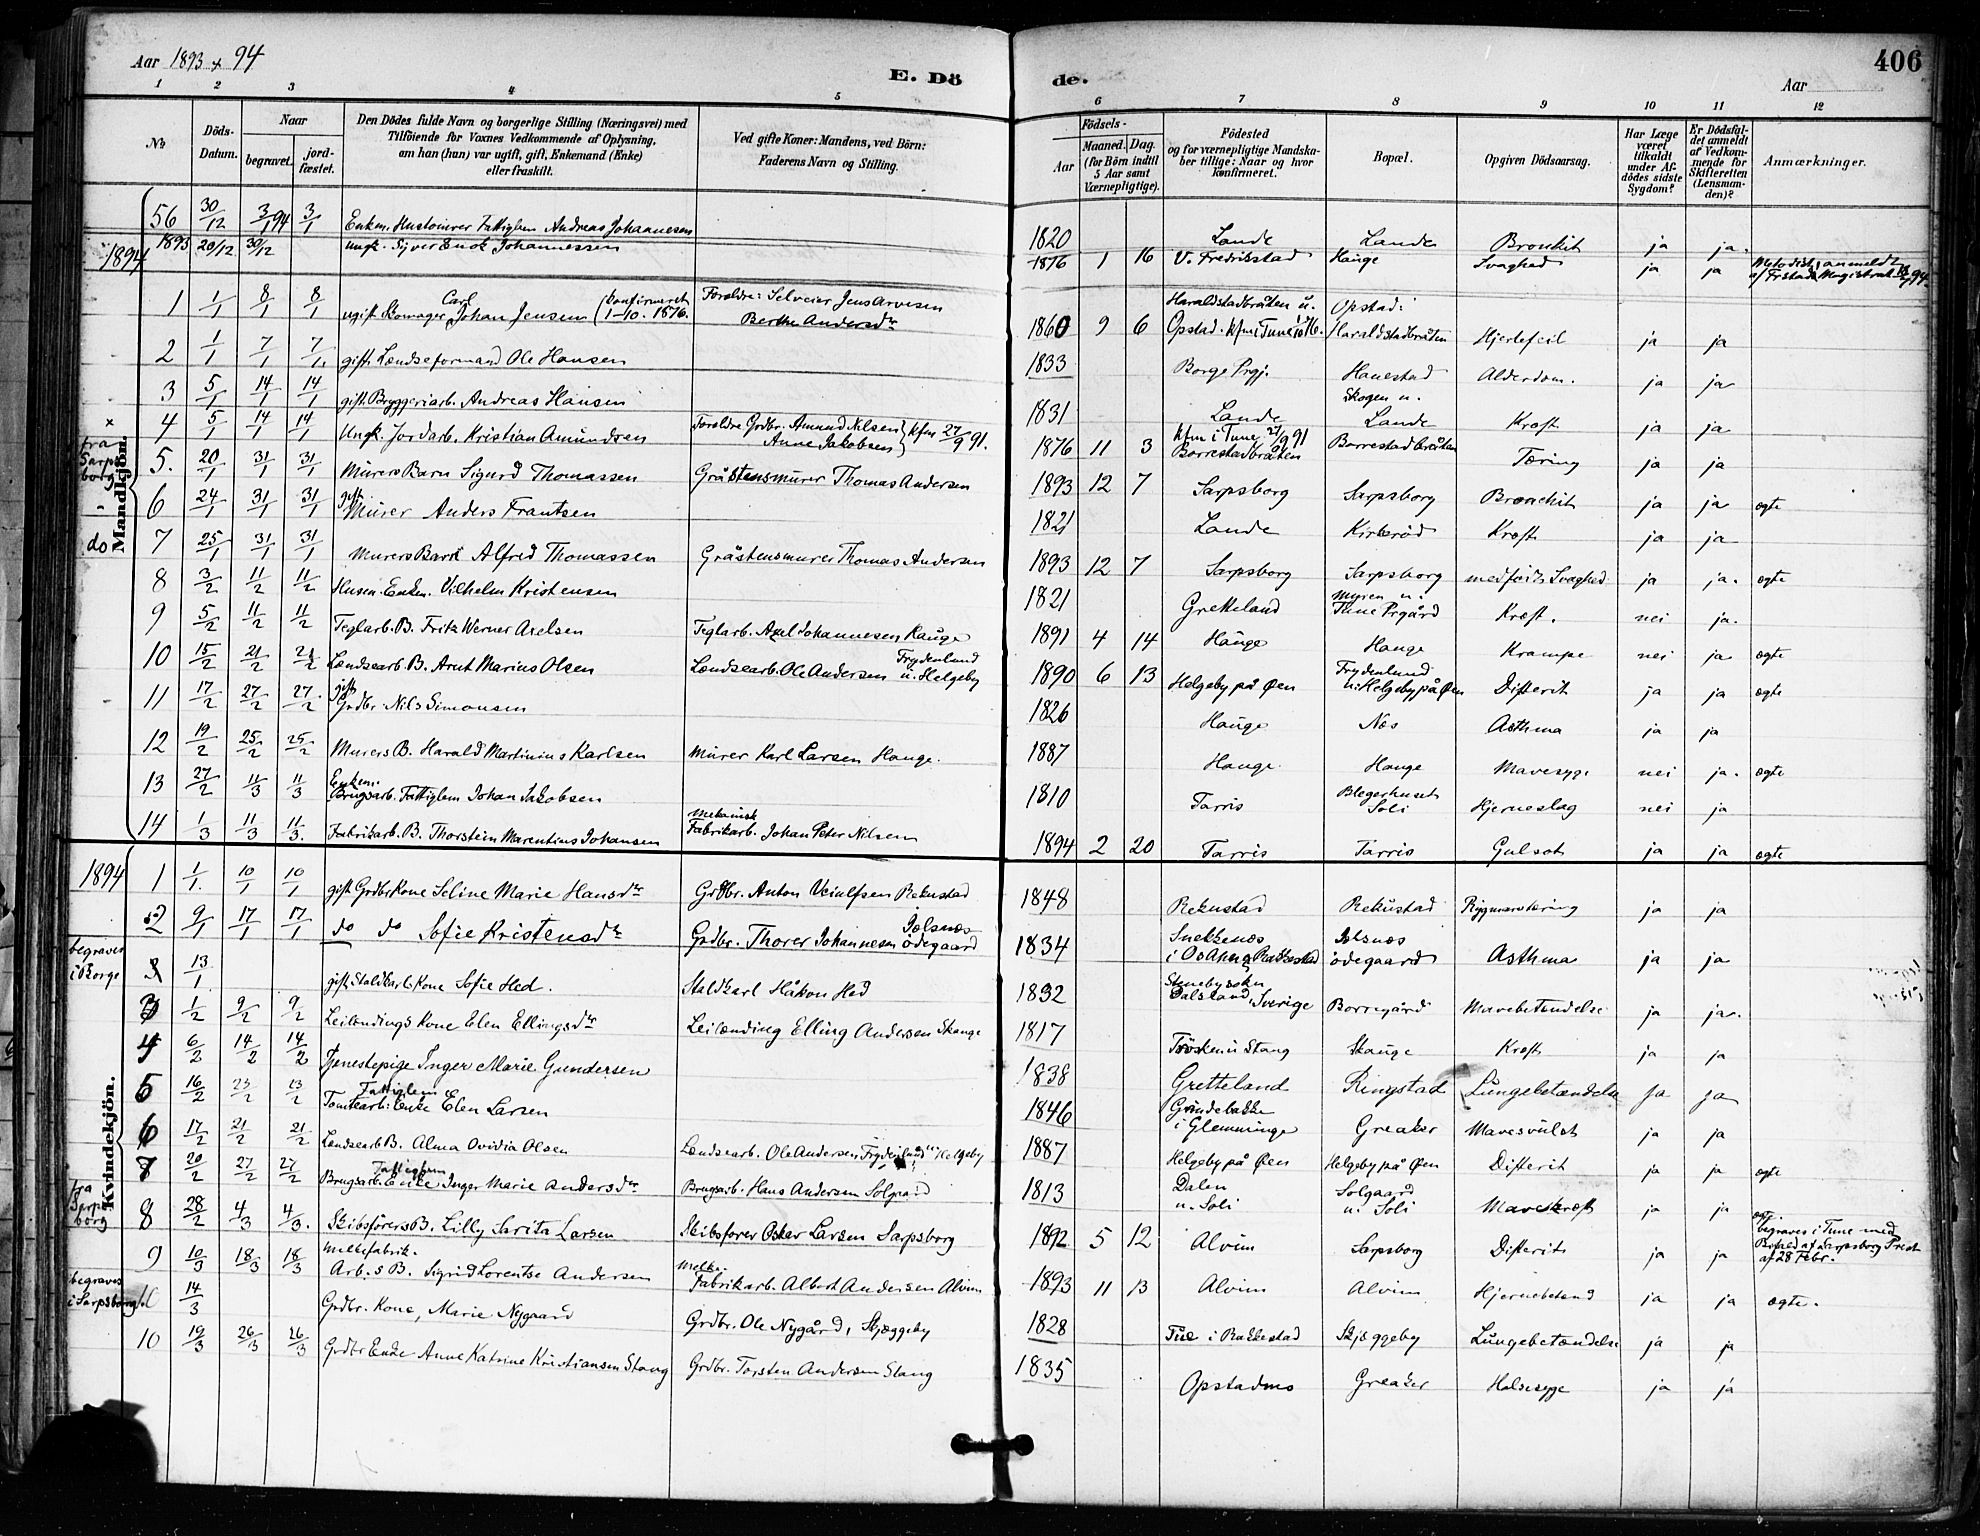 Aar 1893 & 94
E. Dö
de.
Aar
406
1 2 3 4 5 6 7 8 9 10 11 12
No
Döds-Datum.
Naar
begravet.
jord-fæstet.
Den Dödes fulde Navn og borgerlige Stilling (Næringsvei) med
Tilföiende for Voxnes Vedkommende af Oplysning,
om han (hun) var ugift, gift, Enkemand (Enke)
eller fraskilt.
Ved gifte Koner: Mandens, ved Börn:
Faderens Navn og Stilling.
Födsels-
Aar
Maaned. Dag
(for Börn indtil
5 Aar samt
Værnepligtige).
Födested
og for værnepligtige Mandska-
ber tillige: Naar og hvor
Konfirmeret.
Bopæl.
Opgiven Dödsaarsag.
Har Læge
været
tilkaldt
under Af-
dödes sidste
Sygdom?
Er Dödsfal-
det anmeldt
af Vedkom-
mende for
Skifteretten
(Lensman-
den)?
Anmærkninger.
Mandkjön.
56 30/12 3/1 94 3/1 Enkem. Husтömrer Fattiglem Andreas Johannesen 1820 Lande Lande Bronkit ja ja.
1893 20/12 30/12 ungk. Syver Enok Johannessen 1876 1 16 V. Fredrikstad Hauge Svaghed ja ja Metodist, anmeldt
af Frstads Magistrat
1894
1 1/1 8/1 8/1 ugift Skomager Carl Johan Jensen (konfirmeret 1-10. 1876. Forældre: Selveier Jens Arvesen
Berthe Andersdtr 1860 9 6 Haraldstadbråten u.
Opstad. kfm i Tune 1/10 76. Opstad:
Haraldstadbråten Hjertefeil ja ja
2 1/1 7/1 7/1 gift. Lændseformand Ole Hansen 1833 Borge Prgj. Hanestad Alderdom. ja ja
3 5/1 14/1 14/1 gift. Bryggeriarb. Andreas Hansen 1831 Lande Skogen u.
Lande Kræft ja ja
x
4 5/1 14/1 14/1 Ungk. Jordarb. Kristian Amundsen Forældre Grdbr. Amund Nilsen
Anne Jakobsen } kfm 27/9 91. 1876 11 3 kfm i Tune 27/9 91
Borrestadbråten Borrestadbråten Tæring ja ja
fra
Sarps
borg
5. 20/1 31/1 31/1 Murers Barn Sigurd Thomassen Gråstensmurer Thomas Andersen 1893 12 7 Sarpsborg Sarpsborg Bronchit ja ja ægte
6 24/1 31/1 31/1 gift Murer Anders Frantsen 1821 Lande Kirkerød Kræft ja ja
do
7 25/1 31/1 31/1 Murers Barn Alfred Thomassen Gråstensmurer Thomas Andersen 1893 12 7 Sarpsborg Sarpsborg medfødt Svaghed. ja ja. ægte
8 3/2 11/2 11/2 Husm. Enkem. Vilhelm Kristensen 1821 Grekeland Myren u.
Tune Prgård Kræft. nei ja.
9 5/2 11/2 11/2 Teglarb. B. Fritz Werner Axelsen Teglarb. Axel Johannesen Hauge 1891 4 14 Hauge Hauge Krampe nei ja ægte
10 15/2 21/2 21/2 Lændsearb. B. Arnt Marius Olsen Lændsearb. Ole Andersen Frydenlund
u. Helgeby 1890 6 13 Helgeby på Øen Frydenlund
u. Helgeby på Øen Difterit ja ja ægte
11 17/2 27/2 27/2 gift
Grdbr. Nils Simonsen 1826 Hauge Næs Asthma ja ja
12 19/2 25/2 25/2 Murers B. Harald Martinius Karlsen Murer Karl Larsen Hauge. 1887 Hauge. Hauge Mavesyge nei ja. ægte
13 27/2 11/3 11/3 Enkem.
Brugsarb. Fattiglem Johan Jakobsen 1810 Tarris Blegerhuset
Soli Hjerneslag nei ja
14 1/3 11/3 11/3. Fabrikarb. B. Thorstein Marentius Johansen mekanisk
Fabrikarb. Johan Peter Nilsen 1894 2 20 Tarris Tarris Gulsot ja ja ægte
1894
Kvindekjön.
1 1/1 10/1 10/1 gift Grdbr Kone Seline Marie Hansdtr Grdbr. Anton Veiulfsen Rekustad 1848 Rekustad Rekustad Rygmarvtæring ja ja
2 9/1 17/1 17/1 do do Sofie Kristensdtr Grdbr. Thorer Johannesen Isolsnæs
ødegaard 1834 Snekkenæs
i Os Anex Rakkestad Isolsnæs
ødegaard Asthma ja ja
begraves
i Borge
3 13/1 gift Staldkarls Kone Sofie Hed. Staldkarl Håkon Hed 1832 Stenebysokn
Dalsland, Sverige Borregård Mavebetændelse ja ja.
3 1/2 9/2 9/2 Leilendings Kone Elen Ellingsdtr Leilænding Elling Andersen Skauge 1817 Trøsken u Stang Skauge Kræft ja ja
4 6/2 14/2 14/2 Tjenestepige Inger Marie Gundersen 1838 Gretteland Ringstad Lungebetændelse Ja ja
5 16/2 23/2 23/2 Fattiglem
Tomtearb: Enke Elen Larsen 1846 Grindebakke
i Glemminge Greaker Mavesvulst ja ja
6 17/2 21/2 21/2 Lændsearb B. Alma Ovidia Olsen Lændsearb. Ole Andersen Frydenlund u Helgeby 1887 Helgeby på Øen Helgeby på Øen Difterit ja ja ægte
7 20/2 27/2 27/2 Fattiglem
Brugsarb. Enke Inger Marie Andersdtr Brugsarb. Hans Andersen Solgaard 1813 Dalen
u. Soli Solgaard
u. Soli Mavekræft ja ja
fra
Sarps
borg
8 28/2 4/3 4/3. Skibsförers B. Lilly Sarita Larsen Skibsfører Oskar Larsen Sarpsborg 1892 5 12 Alvim Sarpsborg Difterit ja ja ægt.
begraves i Tune med
Bevilg af Sarpsborg Prest
af 28 Febr.
9 10/3 18/3 18/3 Meltefabrik.
Arb.s B. Sigrid Lorentse Andersen Melke.
Fabrikarb. Albert Andersen Alvim 1893 11 13 Alvim Alvim Hjernebetænd ja ja ægte.
begraves
i Sarpsborg.
14/3 Grdbr. Kone, Marie Nygaard Grdbr. Ole Nygård, Skjæggeby 1828 Tue i Rakkestad Skjæggeby Lungebetændelse ja ja
10 19/3 26/3 26/3 Grdbr Enke Anne Katrine Kristiansen Stang Grdbr. Torsten Andersen Stang 1835 Opstadmo Greaker Halssyge ja ja